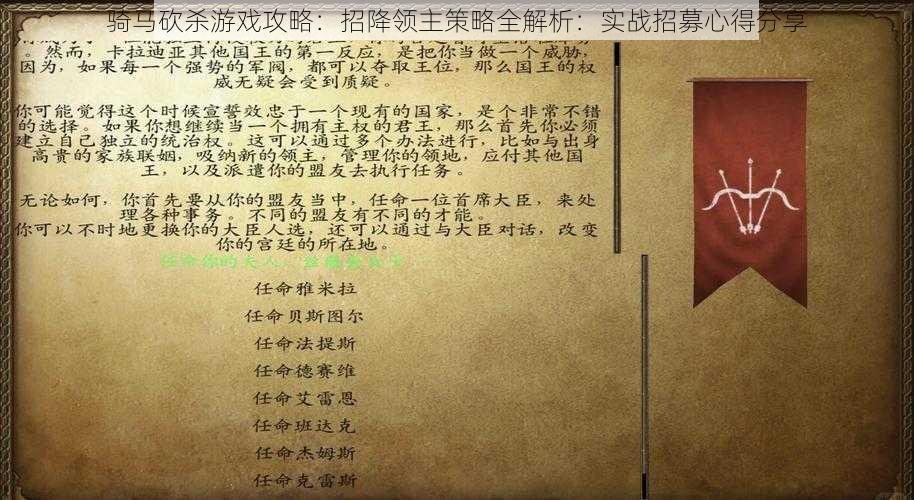 骑马砍杀游戏攻略：招降领主策略全解析：实战招募心得分享
。然而，卡拉迪亚其他国王的第一反应，是把你当做一个威胁，
因为，如果每一个强势的军阀，都可以夺取王位，那么国王的权
威无疑会受到质疑。
你可能觉得这个时候宣誓效忠于一个现有的国家，是个非常不错
的选择。如果你想继续当一个拥有主权的君王，那么首先你必须
建立自己独立的统治权。这可以通过多个办法进行，比如与出身
高贵的家族联姻，吸纳新的领主，管理你的领地，应付其他国
王，以及派遣你的盟友去执行任务。
无论如何，你首先要从你的盟友当中，任命一位首席大臣，来处
理各种事务。不同的盟友有不同的才能。
你可以不时地更换你的大臣人选，还可以通过与大臣对话，改变
你的宫廷的所在地。
任命你的夫人，
任命雅米拉
任命贝斯图尔
任命法提斯
任命德赛维
任命艾雷恩
任命班达克
任命杰姆斯
任命克雷斯